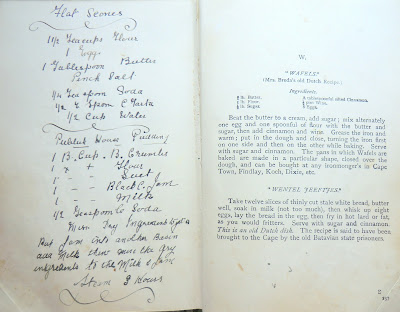 Flat Scones
1 1/2 Teacups Flour
1 Eggs
1 Tablespoon Butter
Pinch Salt
1/4 Teaspoon Soda
1/2 Spoon C Tarta
1/2 Cup Water
House Pudding
1 B. Cup B. Crumbs
1 " " Flour
1 " " Suet
1 - - Black C. Jam
1 - - Milk
1/2 Teaspoon Soda
Mix Dry Ingredients
Put Jam into another Basin
add Milk then mix the dry
ingredients to the Milk & Jam
Steam 3 Hours
W.
"WAFELS"
(Mrs. Breda's old Dutch Recipe.)
Ingredients.
lb. Butter.
lb. Flour.
lb. Sugar.
A tablespoonful sifted Cinnamon.
Wine.
Eggs.
Beat the butter to a cream, add sugar; mix alternately
one egg and one spoonful of flour with the butter and
sugar, then add cinnamon and wine. Grease the iron and
warm; put in the dough and close, turning the iron first
on one side and then on the other while baking. Serve
with sugar and cinnamon. The pans in which Wafels are
baked are made in a particular shape, closed over the
dough, and can be bought at any ironmonger's in Cape
Town, Findlay, Koch, Dixie, etc.
"WENTEL JEEFTJES"
Take twelve slices of thinly cut stale white bread, butter
well, soak in milk (not too much), then whisk up eight
eggs, lay the bread in the egg, then fry in hot lard or fat,
as you would fritters. Serve with sugar and cinnamon.
This is an old Dutch dish. The recipe is said to have been
brought to the Cape by the old Batavian state prisoners.
Z
257